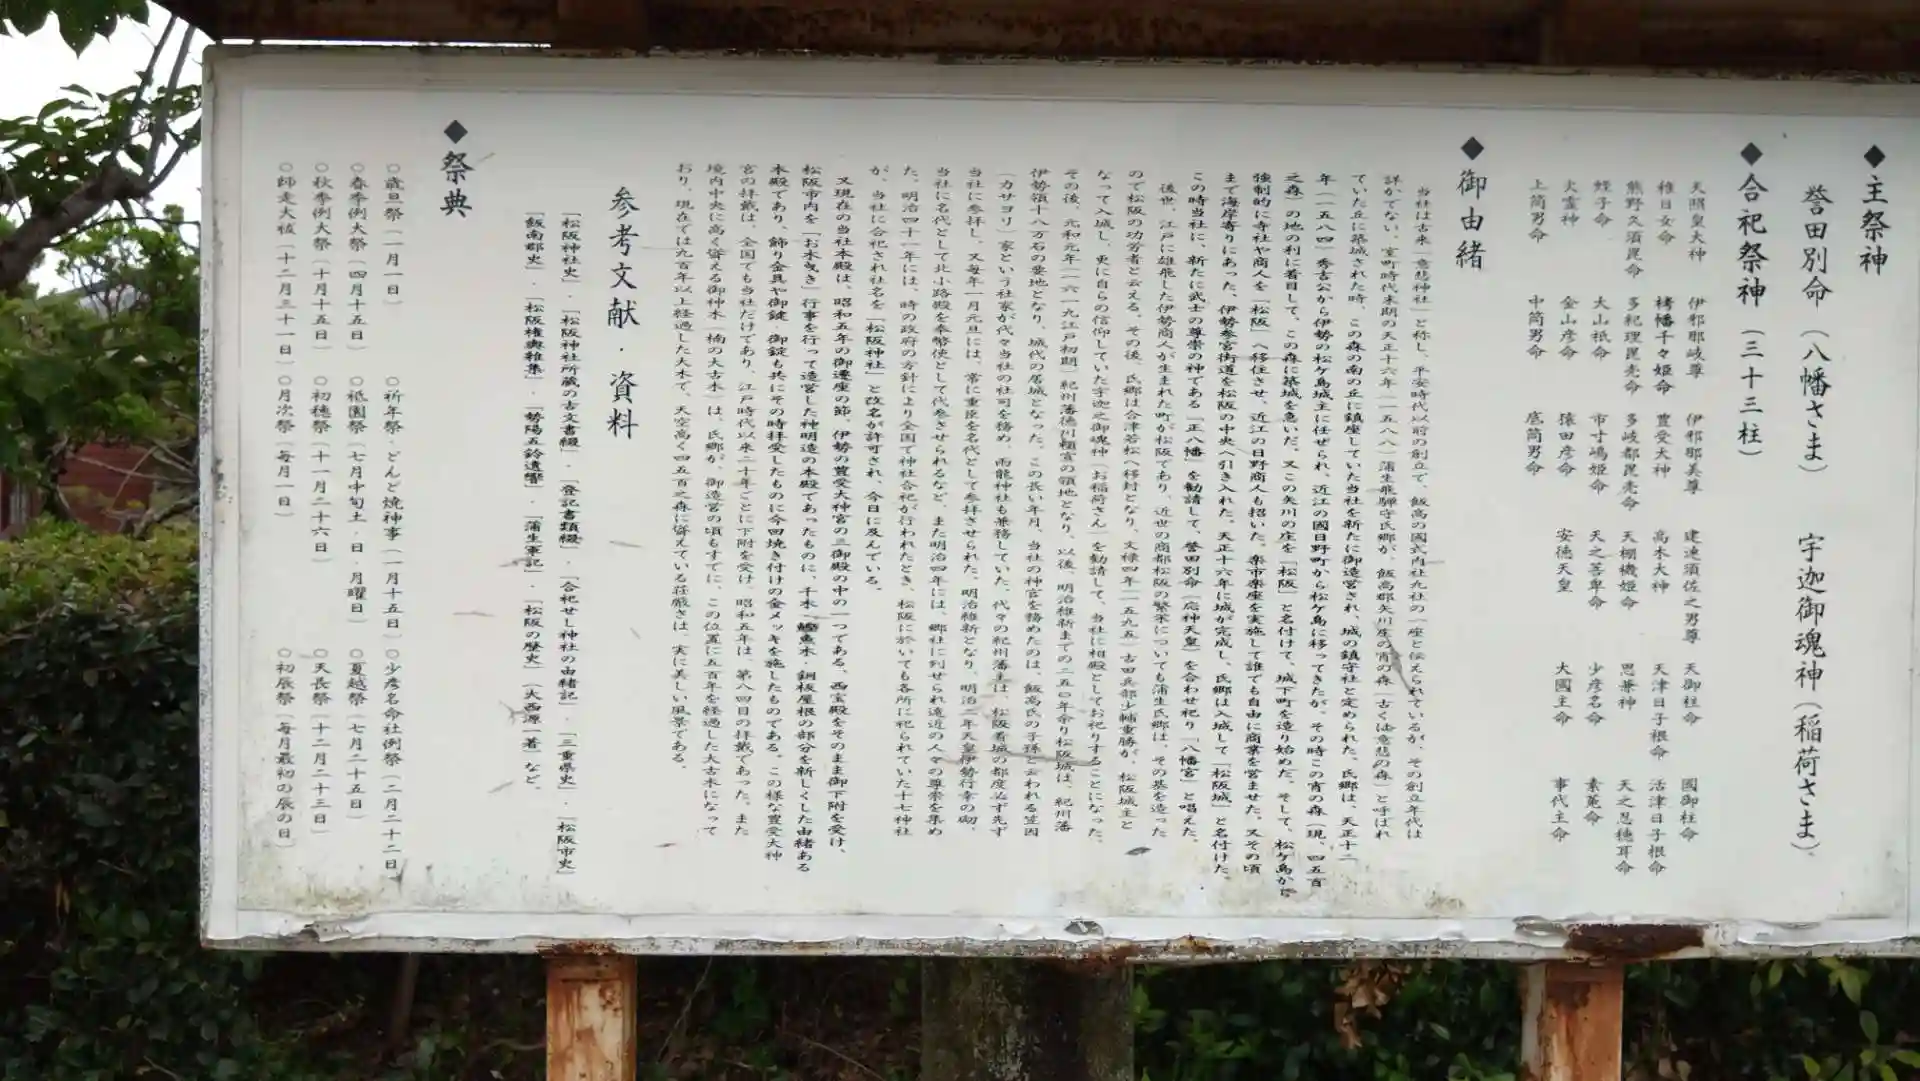 ◆主祭神
誉田別命(八幡さま) 宇迦御魂神(稲荷さま)
◆合祀祭神(三十三柱)
天照皇大神 伊邪那岐尊 伊邪那美尊 建速須佐之男尊 天御柱命 國御柱命
稚日女命 栲幡千々姫命 豊受大神 高木大神 天津日子根命 活津日子根命
熊野久須毘命 多紀理毘売命 多岐都毘売命 天棚機姫命 思兼神 天之忍穂耳命
蛭子命 大山祇命 市寸嶋姫命 天之菩卑命 少彦名命 素莵命
火霊神 金山彦命 猿田彦命 安徳天皇 大國主命 事代主命
上筒男命 中筒男命 底筒男命
◆御由緒
当社は古来「意悲神社」と称し、平安時代以前の創立で、飯高の國式内社九社の一座と伝えられているが、その創立年代は
詳かでない。室町時代末期の天正十六年(一五八八)蒲生飛騨守氏郷が、飯高郡矢川庄の宵の森(古くは意悲の森)と呼ばれ
ていた丘に築城された時、この森の南の丘に鎮座していた当社を新たに御造営され、城の鎮守社と定められた。氏郷は、天正十二
年(一五八四)秀吉公から伊勢の松ケ島城主に任せられ、近江の國日野町から松ケ島に移ってきたが、その時この宵の森(現、四五百
之森)の地の利に着目して、この森に築城を急いだ。又この矢川の庄を「松阪」と名付けて、城下町を造り始めた。そして、松ケ島から
強制的に寺社や商人を「松阪」へ移住させ、近江の日野商人も招いた。楽市楽座を実施して誰でも自由に商業を営ませた。又その頃
まで海岸寄りにあった、伊勢参宮街道を松阪の中央へ引き入れた。天正十六年に城が完成し、氏郷は入城して「松阪城」と名付けた。
この時当社に、新たに武士の尊崇の神である「正八幡」を勧請して、誉田別命(応神天皇)を合わせ祀り「八幡宮」と唱えた。
後世、江戸に雄飛した伊勢商人が生まれた町が松阪であり、近世の商都松阪の繁栄についても蒲生氏郷は、その基を造った
ので松阪の功労者と云える。その後、氏郷は会津若松へ移封となり、文禄四年(一五九五)古田兵部少輔重勝が、松阪城主と
なって入城し、更に自らの信仰していた宇迦之御魂神(お稲荷さん)を勧請して、当社に相殿としてお祀りすることになった。
その後、元和元年(一六一九江戸初期)紀州藩徳川頼宣の領地となり、以後、明治維新までの二五〇年余り松阪城は、紀州藩
伊勢領十八万石の要地となり、城代の居城となった。この長い年月、当社の神官を務めたのは、飯高氏の子孫と云われる笠因
(カサヨリ)家という社家が代々当社の社司を務め、雨龍神社も兼務していた。代々の紀州藩主は、松阪着城の都度必ず先ず
当社に参拝し、又毎年一月元旦には、常に重臣を名代として参拝させられた。明治維新となり、明治二年天皇伊勢行幸の砌、
当社に名代として北小路殿を奉幣使として代参させられるなど、また明治四年には、郷社に列せられ遠近の人々の尊崇を集め
た。明治四十一年には、時の政府の方針により全国で神社合祀が行われたとき、松阪に於いても各所に祀られていた十七神社
が、当社に合祀され社名を「松阪神社」と改名が許可され、今日に及んでいる。
又現在の当社本殿は、昭和五年の御遷座の節、伊勢の豊受大神宮の三御殿の中の一つである、西宝殿をそのまま御下附を受け、
松阪市内を「お木曳き」行事を行って造営した神明造の本殿であったものに、千木・鰹魚木・銅板屋根の部分を新しくした由緒ある
本殿であり、飾り金具や御鍵・御錠も共にその時拝受したものに今回焼き付けの金メッキを施したものである。この様な豊受大神
宮の拝戴は、全国でも当社だけであり、江戸時代以来二十年ごとに下附を受け、昭和五年は、第八四目の拝戴であった。また
境内中央に高く聳える御神木(楠の大古木)は、氏郷が、御造営の頃もすでに、この位置に五百年を経過した大古木になって
おり、現在では九百年以上経過した大木で、天空高く四五百之森に聳えている荘厳さは、実に美しい風景である。
参考文献・資料
「松阪神社史」・「松阪神社所蔵の古文書綴」・「登記書類綴」・「合祀せし神社の由緒記」・「三重県史」・「松阪市史」
「飯南郡史」・「松阪権輿雑集」・「勢陽五鈴遺響」・「蒲生軍記」・「松阪の歴史」(大西源一著)など。
◆祭典
○歳旦祭(一月一日) ○祈年祭・どんど焼神事(一月十五日) ○少彦名命社例祭(二月二十二日)
○春季例大祭(四月十五日) ○祇園祭(七月中旬土・日・月曜日) ○夏越祭(七月二十五日)
○秋季例大祭(十月十五日) ○初穂祭(十一月二十六日) ○天長祭(十二月二十三日)
○師走大祓(十二月三十一日) ○月次祭(毎月一日) ○初辰祭(毎月最初の辰の日)